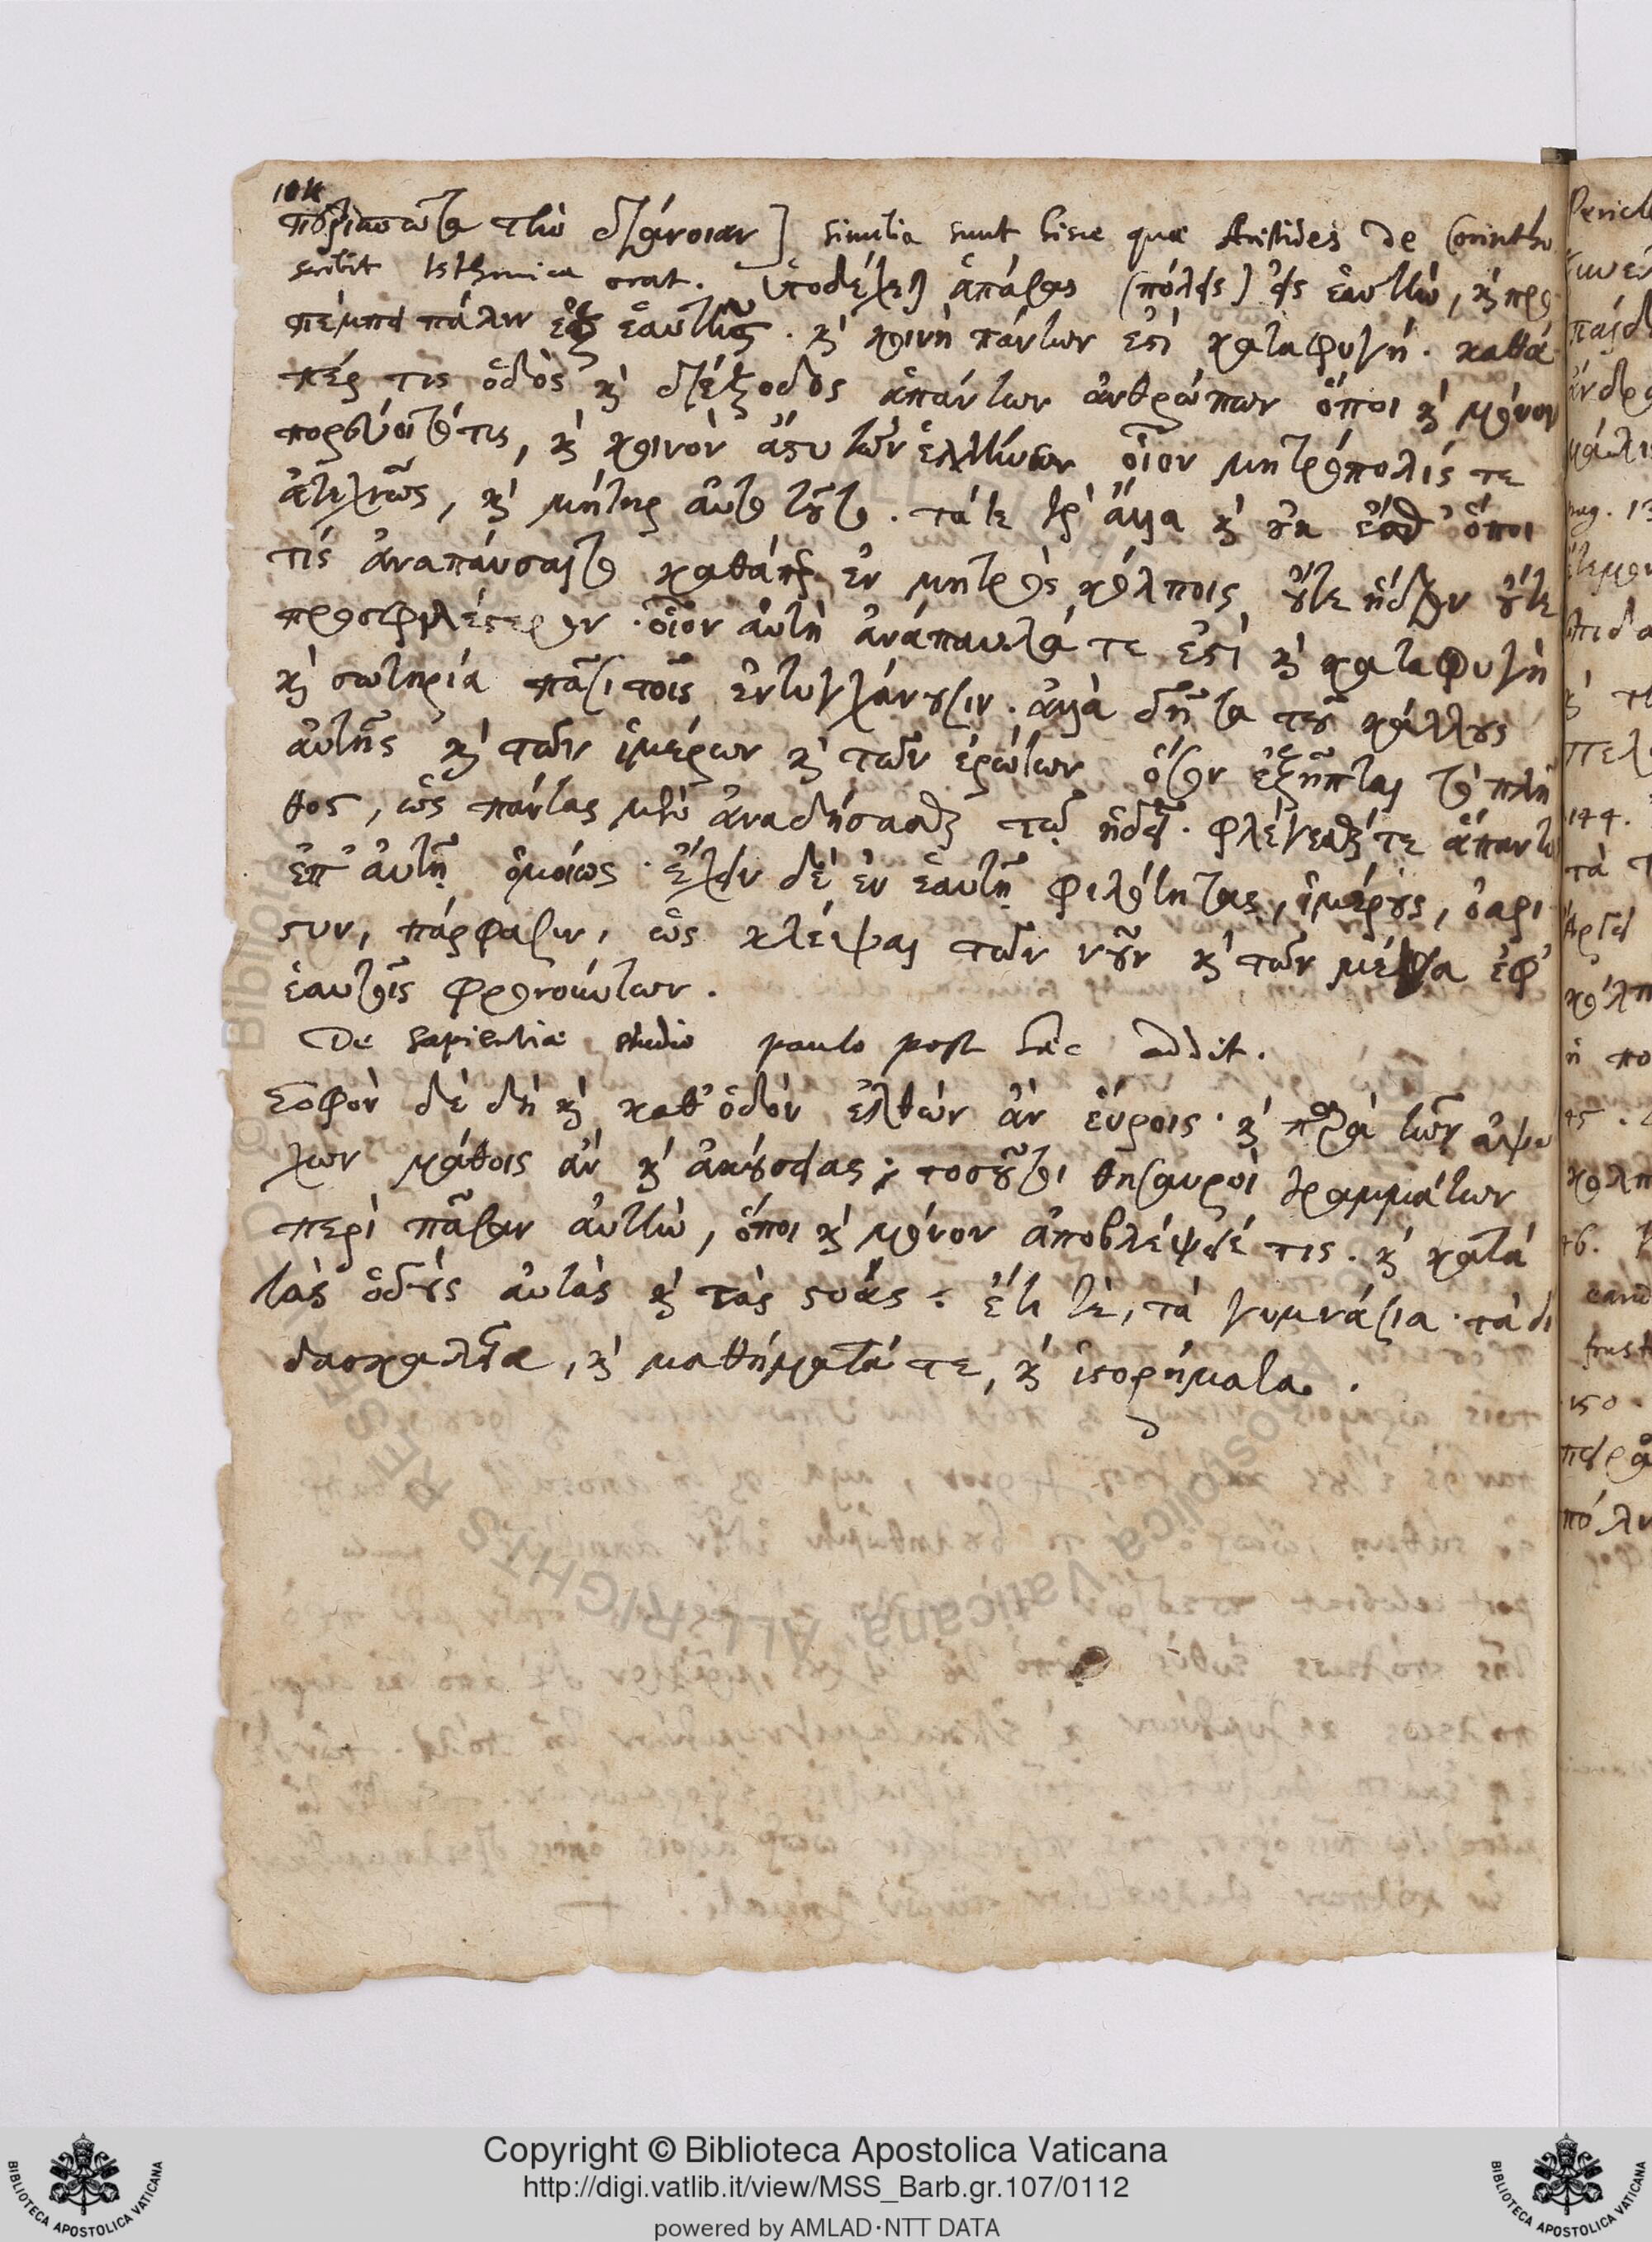 τὴν διάνοιαν] similia sunt hisce quæ Aristides de Corintho
scribit Isthmica orat. ὑποδέχεται ἅπαντας (πόλεις) εἰς ἑαυτὴν, καὶ προ
πέμπει πάλιν ἐξ ἑαυτῆς. καὶ κοινὴ πάντων ἐστὶ καταφυγή. καθά
πέρ τις ὁδὸς καὶ διέξοδος ἁπάντων ἀνθρώπων ὅποι καὶ μόνον
πορεύοιτό τις, καὶ κοινὸν ἄστυ τῶν ἑλλήνων οἷον μητρόπολίς τε
ἀτεχνῶς, καὶ μήτηρ αὐτὸ τοῦτο. τά τε γὰρ ἄλλα καὶ οὐκ ἔσθ' ὅποι
τίς ἀναπαύσαιτο καθάπερ ἐν μητρὸς κόλποις οὔτε ἥδιον οὔτε
προσφιλέστερον. οἷον αὐτὴ ἀνάπαυλά τε ἐστὶ καὶ καταφυγὴ
καὶ σωτηρία πᾶσι τοῖς ἐντυγχάνουσιν. ἀλλὰ δῆτα τοῦ κάλλους
αὐτῆς καὶ τῶν ἱμέρων καὶ τῶν ἐρώτων ὅσον ἐξῆπται τὸ πλῆ
θος, ὡς πάντας μὲν ἀναδήσασθαι τῷ ἡδεῖ. φλέγεσθαί τε ἅπαντας
ἐπ' αὐτῇ ὁμοίως. ἔχειν δὲ ἐν ἑαυτῇ φιλότητας, ἱμέρους, ὀαρι
στυν, πάρφασιν, ὡς κλέψαι τῶν νοῦν καὶ τῶν μέγα ἐφ'
ἑαυτοῖς φρονούντων.
De sapientiæ studio paulo post hæc addit.
Σοφὸν δὲ δὴ καὶ καθ' ὁδὸν ἐλθὼν ἂν εὕροις. καὶ παρὰ τῶν ἀψύ
χων μάθοις ἂν καὶ ἀκούσειας; τοσοῦτοι θησαυροὶ γραμμάτων
περὶ πᾶσαν αὐτὴν, ὅποι καὶ μόνον ἀποβλέψειέ τις. καὶ κατὰ
τὰς ὁδοὺς αὐτὰς καὶ τὰς στοάς: ἔτι τὲ, τὰ γυμνάσια. τὰ δι
δασκαλεῖα, καὶ μαθήματά τε, καὶ ἱστορήματα.
Copyright © Biblioteca Apostolica Vaticana
http://digi.vatlib.it/view/MSS_Barb.gr.107/0112
powered by AMLAD·NTT DATA